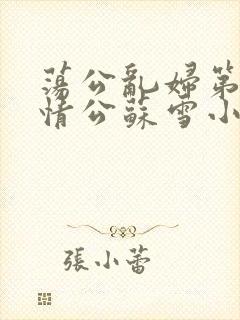 蕩公亂婦第
情公蘇雪小
張小蕾